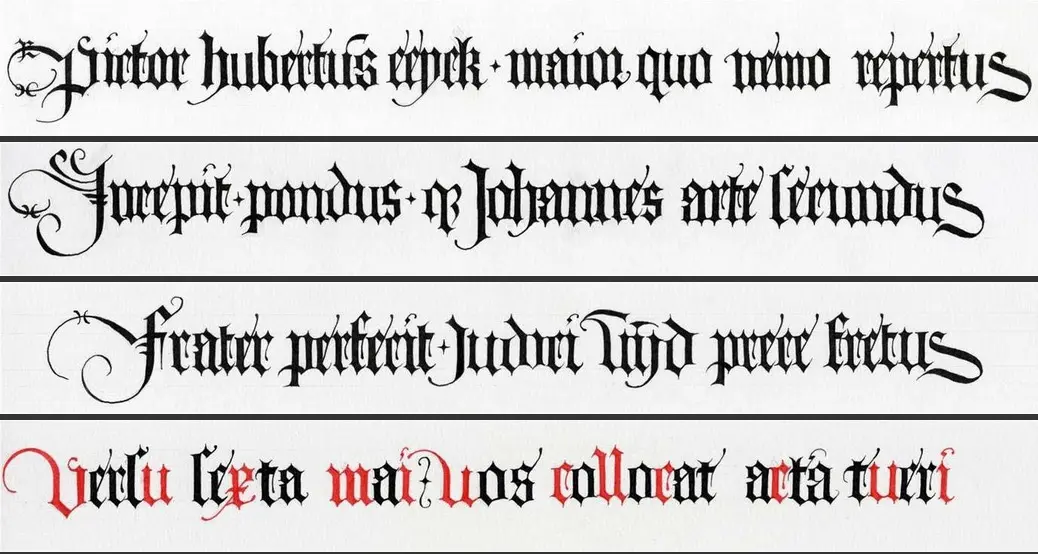 Pictor hubertus eeyck · maior quo nemo repertus
Incepit · pondus · qꝫ Johannes arte ſecundus
Frater perfecit · Judoci Vijd prece fretus
Verſu ſexta mai Vos collocat acta tueri